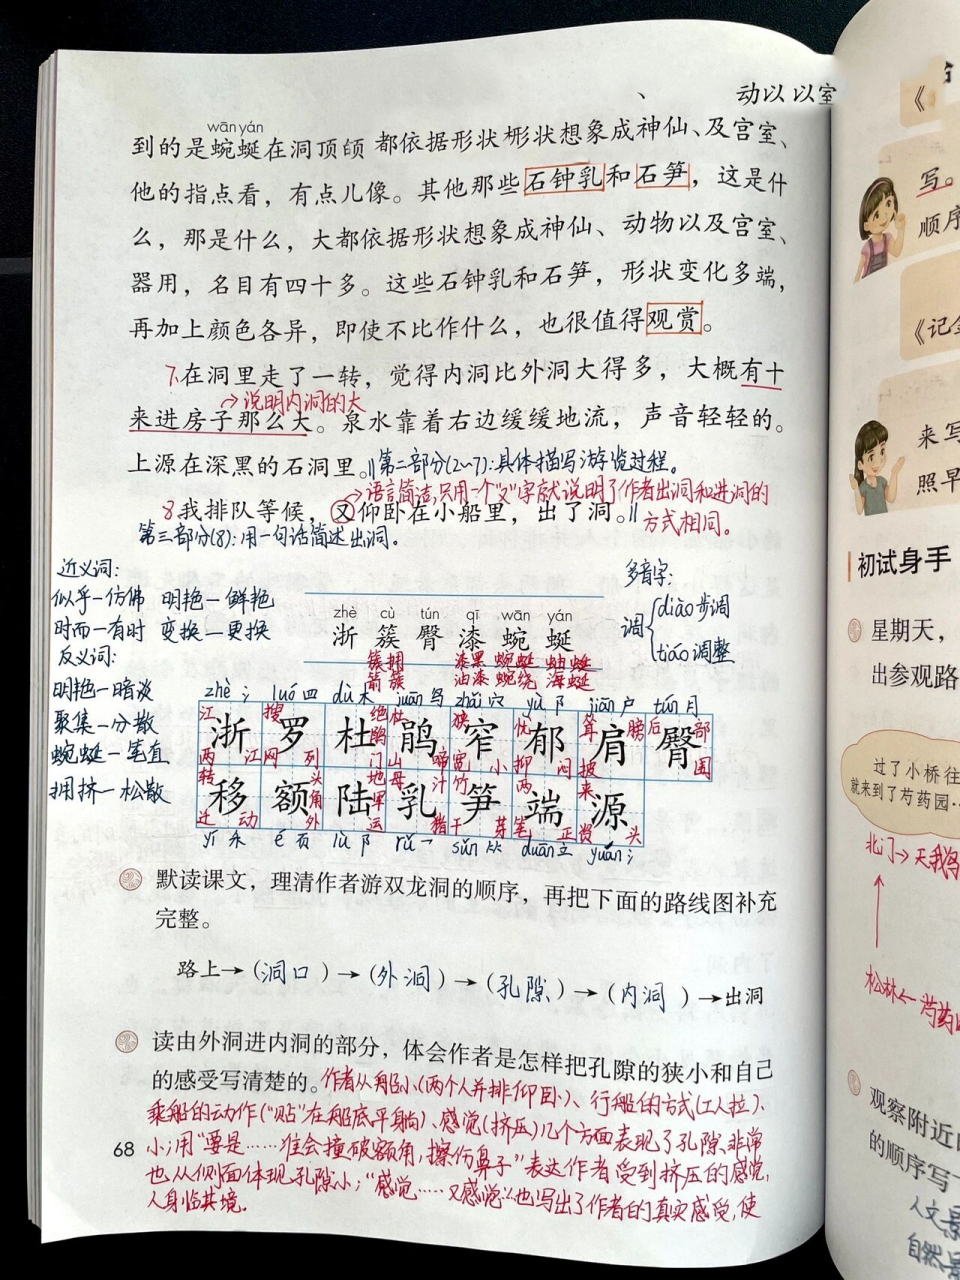 动以 以室
wān yán
到的是蜿蜒在洞顶 都依据形状 形状想象成神仙、及宫室、
他的指点看，有点儿像。其他那些石钟乳和石笋，这是什
么，那是什么，大都依据形状想象成神仙、动物以及宫室、
器用，名目有四十多。这些石钟乳和石笋，形状变化多端，
再加上颜色各异，即使不比作什么，也很值得观赏。
7.在洞里走了一转，觉得内洞比外洞大得多，大概有十
→说明内洞的大
来进房子那么大。泉水靠着右边缓缓地流，声音轻轻的。
上源在深黑的石洞里。‖第二部分(2~7):具体描写游览过程。
→语言简洁,只用一个"又"字就说明了作者出洞和进洞的
8我排队等候，又仰卧在小船里，出了洞。‖
方式相同。
第三部分(8):用一句话简述出洞。
近义词:
似乎—仿佛 明艳—鲜艳
时而—有时 变换—更换
反义词:
明艳—暗淡
聚集—分散
蜿蜒—笔直
拥挤—松散
多音字:
调 diào步调
tiáo调整
zhè cù tún qī wān yán
浙 簇 臀 漆 蜿 蜒
簇拥 漆黑 蜿蜒 蚰蜒
箭簇 油漆 蜿绕 海蜒
zhè 氵 luó 四 dù 木 juān 鸟 zhǎi 穴 yù 阝 jiān 户 tún 月
浙 罗 杜 鹃 窄 郁 肩 臀
移 额 陆 乳 笋 端 源
yí 禾 é 页 lù 阝 rǔ sǔn duān 立 yuán 氵
默读课文，理清作者游双龙洞的顺序，再把下面的路线图补充
完整。
路上→(洞口)→(外洞)→(孔隙)→(内洞)→出洞
读由外洞进内洞的部分，体会作者是怎样把孔隙的狭小和自己
的感受写清楚的。作者从船小(两个人并排仰卧)、行船的方式(工人拉)、
乘船的动作("贴"在船底平躺)、感觉(挤压)几个方面表现了孔隙非常
小;用"要是……准会撞破额角,擦伤鼻子"表达作者受到挤压的感觉,
也从侧面体现孔隙小;"感觉……又感觉"也写出了作者的真实感受,使
人身临其境。
68
写。
顺序
《记金
来写
照早
初试身手
星期天，
出参观路
过了小桥往
就来到了芍药园
北门→天鹅
松林←芍药
观察附近的
的顺序写一
人文景
自然景